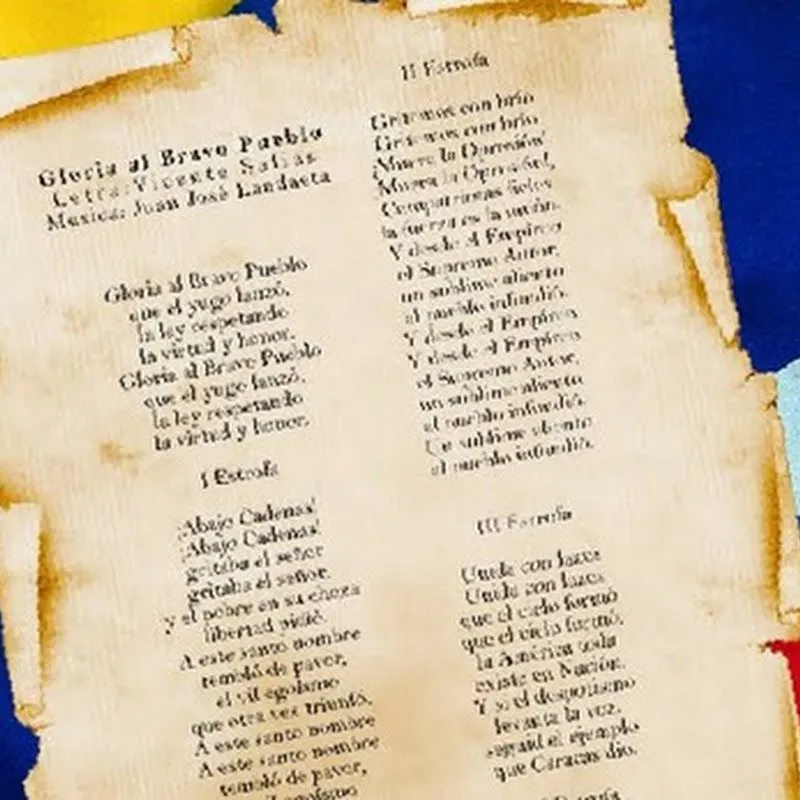 Gloria al Bravo Pueblo
Letra: Vicente Salias
Musica: Juan José Landaeta
Gloria al Bravo Pueblo
que el yugo lanzó,
la ley respetando
la virtud y honor.
Gloria al Bravo Pueblo
que el yugo lanzó,
la ley respetando
la virtud y honor.
I Estrofa
¡Abajo Cadenas!
¡Abajo Cadenas!
gritaba el señor
gritaba el señor.
y el pobre en su choza
libertad pidió.
A este santo nombre
tembló de pavor,
el vil egoísmo
que otra vez triunfó.
A este santo nombre
A este santo nombre
tembló de pavor,
egoísmo
II Estrofa
Gritemos con brío
Gritemos con brío
¡Muera la Opresión!
¡Muera la Opresión!,
Compatriotas fieles
la fuerza es la unión.
Y desde el Empíreo
el Supremo Autor,
un sublime aliento
al pueblo infundió.
Y desde el Empíreo
Y desde el Empíreo
el Supremo Autor,
un sublime aliento
al pueblo infundió.
Un sublime aliento
al pueblo infundió.
III Estrofa
Unida con lazos
Unida con lazos
que el cielo formó
que el cielo formó,
la América toda
existe en Nación.
Y si el despotismo
levanta la voz,
seguid el ejemplo
que Caracas dio.